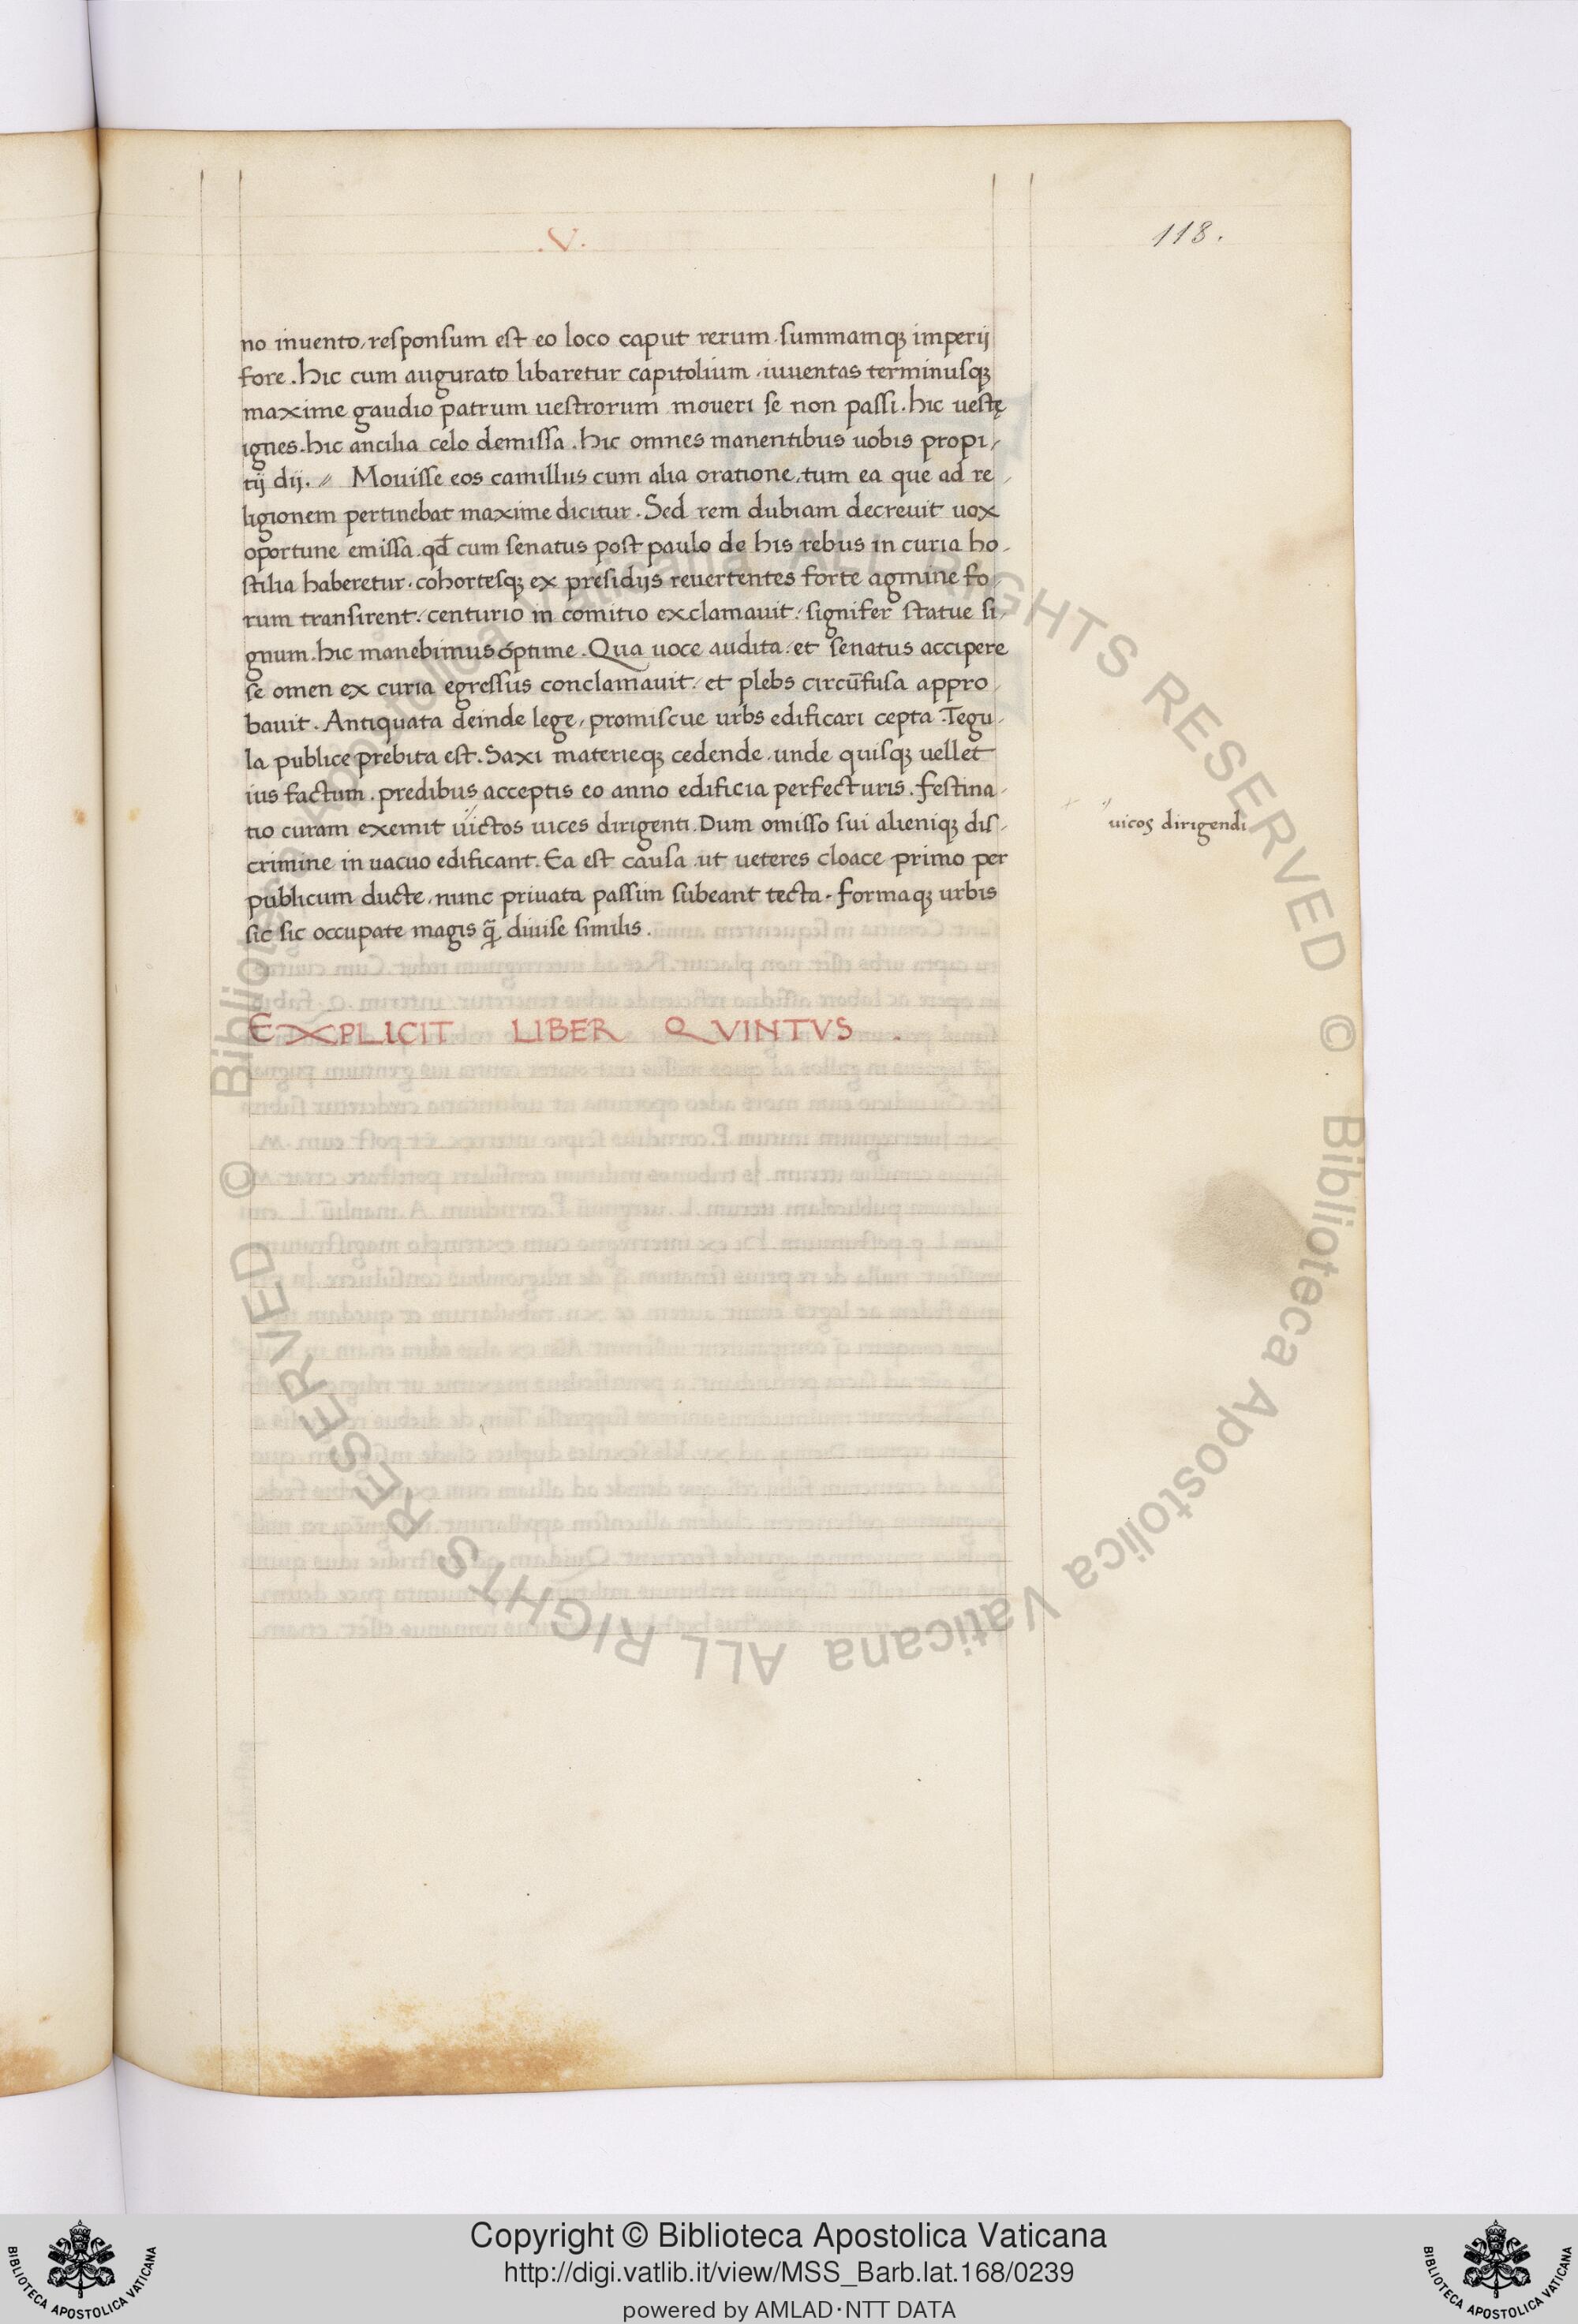 .V.
118.
no inuento, responsum est eo loco caput rerum. summamq; imperij
fore. hic cum augurato libaretur capitolium. iuuentas terminusq;
maxime gaudio patrum uestrorum moueri se non passi. hic uestę
ignes. hic ancilia celo demissa. hic omnes manentibus uobis propi/
tij dij. // Mouisse eos camillus cum alia oratione, tum ea que ad re/
ligionem pertinebat maxime dicitur. Sed rem dubiam decreuit uox
oportune emissa. qđ cum senatus post paulo de his rebus in curia ho/
stilia haberetur. cohortesq; ex presidijs reuertentes forte agmine fo/
rum transirent. centurio in comitio exclamauit. signifer statue si/
gnum. hic manebimus optime. Qua uoce audita. et senatus accipere
se omen ex curia egressus conclamauit. et plebs circūfusa appro/
bauit. Antiquata deinde lege, promiscue urbs edificari cepta. Tegu/
la publice prebita est. Saxi materieq; cedende. unde quisq; uellet
ius factum. predibus acceptis eo anno edificia perfecturis. festina/
tio curam exemit uictos uices dirigenti. Dum omisso sui alieniq; dis/
crimine in uacuo edificant. Ea est causa ut ueteres cloace primo per
publicum ducte, nunc priuata passim subeant tecta. formaq; urbis
sic sic occupate magis q̄ diuise similis.
uicos dirigendi
EXPLICIT LIBER QVINTVS .
© Biblioteca Apostolica Vaticana ALL RIGHTS RESERVED
© Biblioteca Apostolica Vaticana ALL RIGHTS RESERVED
Copyright © Biblioteca Apostolica Vaticana
http://digi.vatlib.it/view/MSS_Barb.lat.168/0239
powered by AMLAD·NTT DATA
BIBLIOTECA APOSTOLICA VATICANA
BIBLIOTECA APOSTOLICA VATICANA